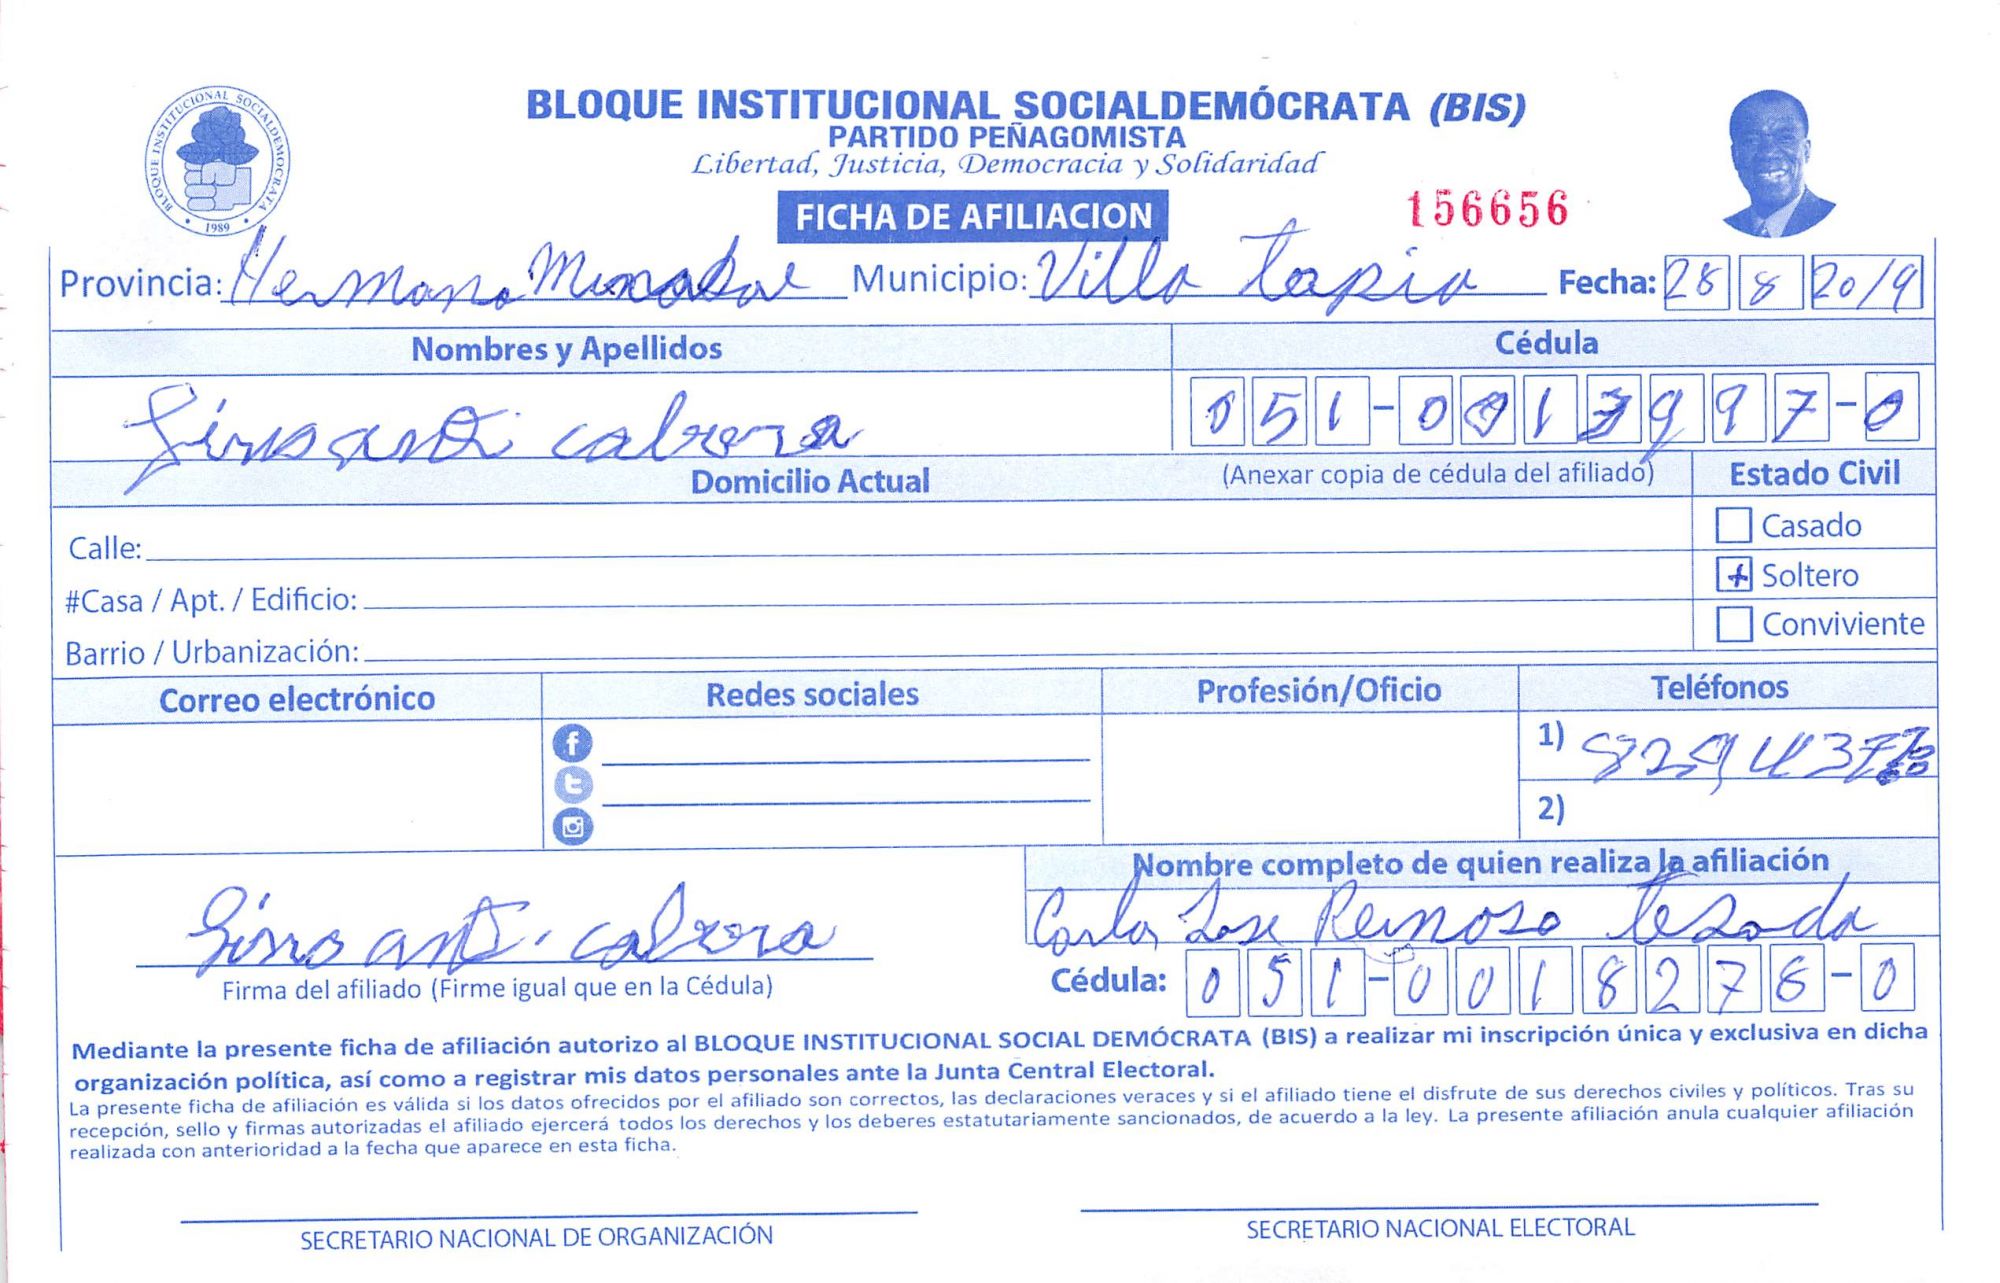 BLOQUE INSTITUCIONAL SOCIALDEMOCRATA
1989
BLOQUE INSTITUCIONAL SOCIALDEMÓCRATA (BIS)
PARTIDO PEÑAGOMISTA
Libertad, Justicia, Democracia y Solidaridad
FICHA DE AFILIACION
156656
Provincia: Hermana Municipio: Villa Tapia Fecha: 28 8 2019
Nombres y Apellidos Cédula
cabrera 051-0013997-0
Domicilio Actual (Anexar copia de cédula del afiliado) Estado Civil
Casado
Calle:
+ Soltero
#Casa / Apt. / Edificio:
Conviviente
Barrio / Urbanización:
Correo electrónico Redes sociales Profesión/Oficio Teléfonos
1) 829437
2)
Nombre completo de quien realiza la afiliación
cabrera Carlos Jose Reinoso tesada
Firma del afiliado (Firme igual que en la Cédula) Cédula: 051-0018278-0
Mediante la presente ficha de afiliación autorizo al BLOQUE INSTITUCIONAL SOCIAL DEMÓCRATA (BIS) a realizar mi inscripción única y exclusiva en dicha
organización política, así como a registrar mis datos personales ante la Junta Central Electoral.
La presente ficha de afiliación es válida si los datos ofrecidos por el afiliado son correctos, las declaraciones veraces y si el afiliado tiene el disfrute de sus derechos civiles y políticos. Tras su
recepción, sello y firmas autorizadas el afiliado ejercerá todos los derechos y los deberes estatutariamente sancionados, de acuerdo a la ley. La presente afiliación anula cualquier afiliación
realizada con anterioridad a la fecha que aparece en esta ficha.
SECRETARIO NACIONAL DE ORGANIZACIÓN SECRETARIO NACIONAL ELECTORAL